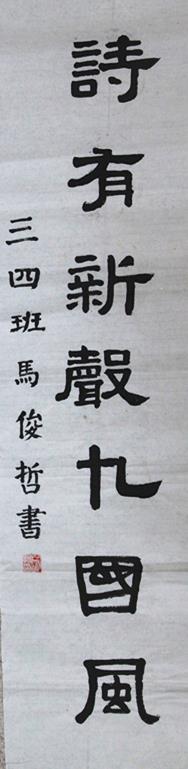 詩有新聲九國風
三四班馬俊哲書